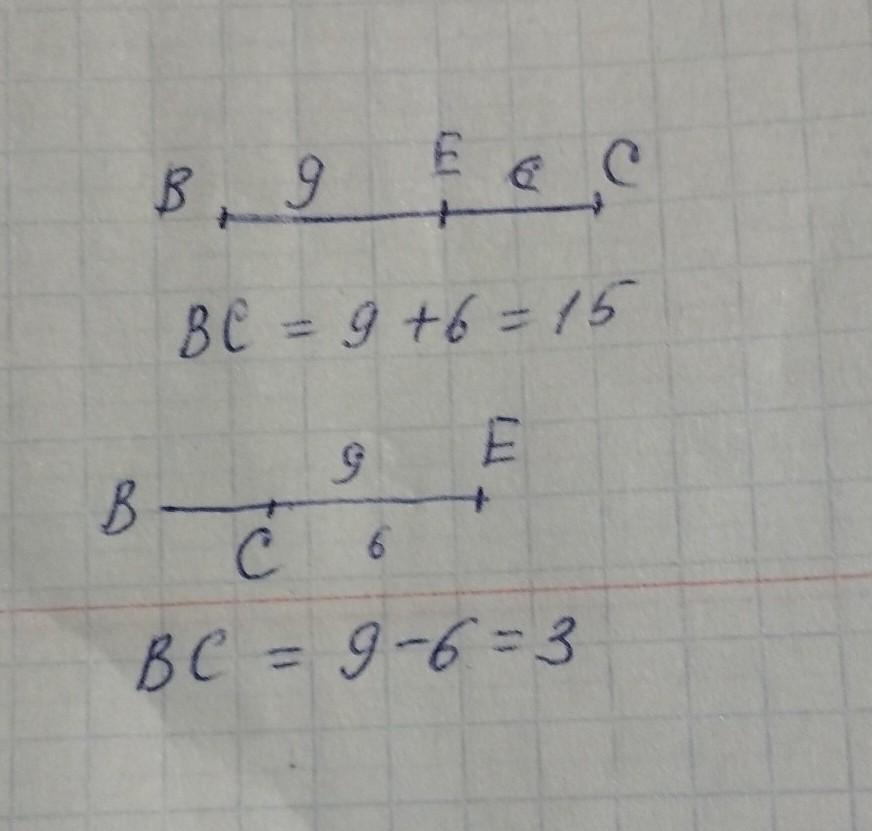 B 9 E 6 C
BC = 9 + 6 = 15
B 9 E
C 6
BC = 9 - 6 = 3